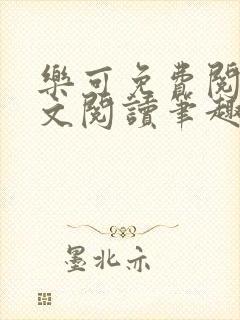 樂可免費閱
文閱讀筆趣
墨北亦